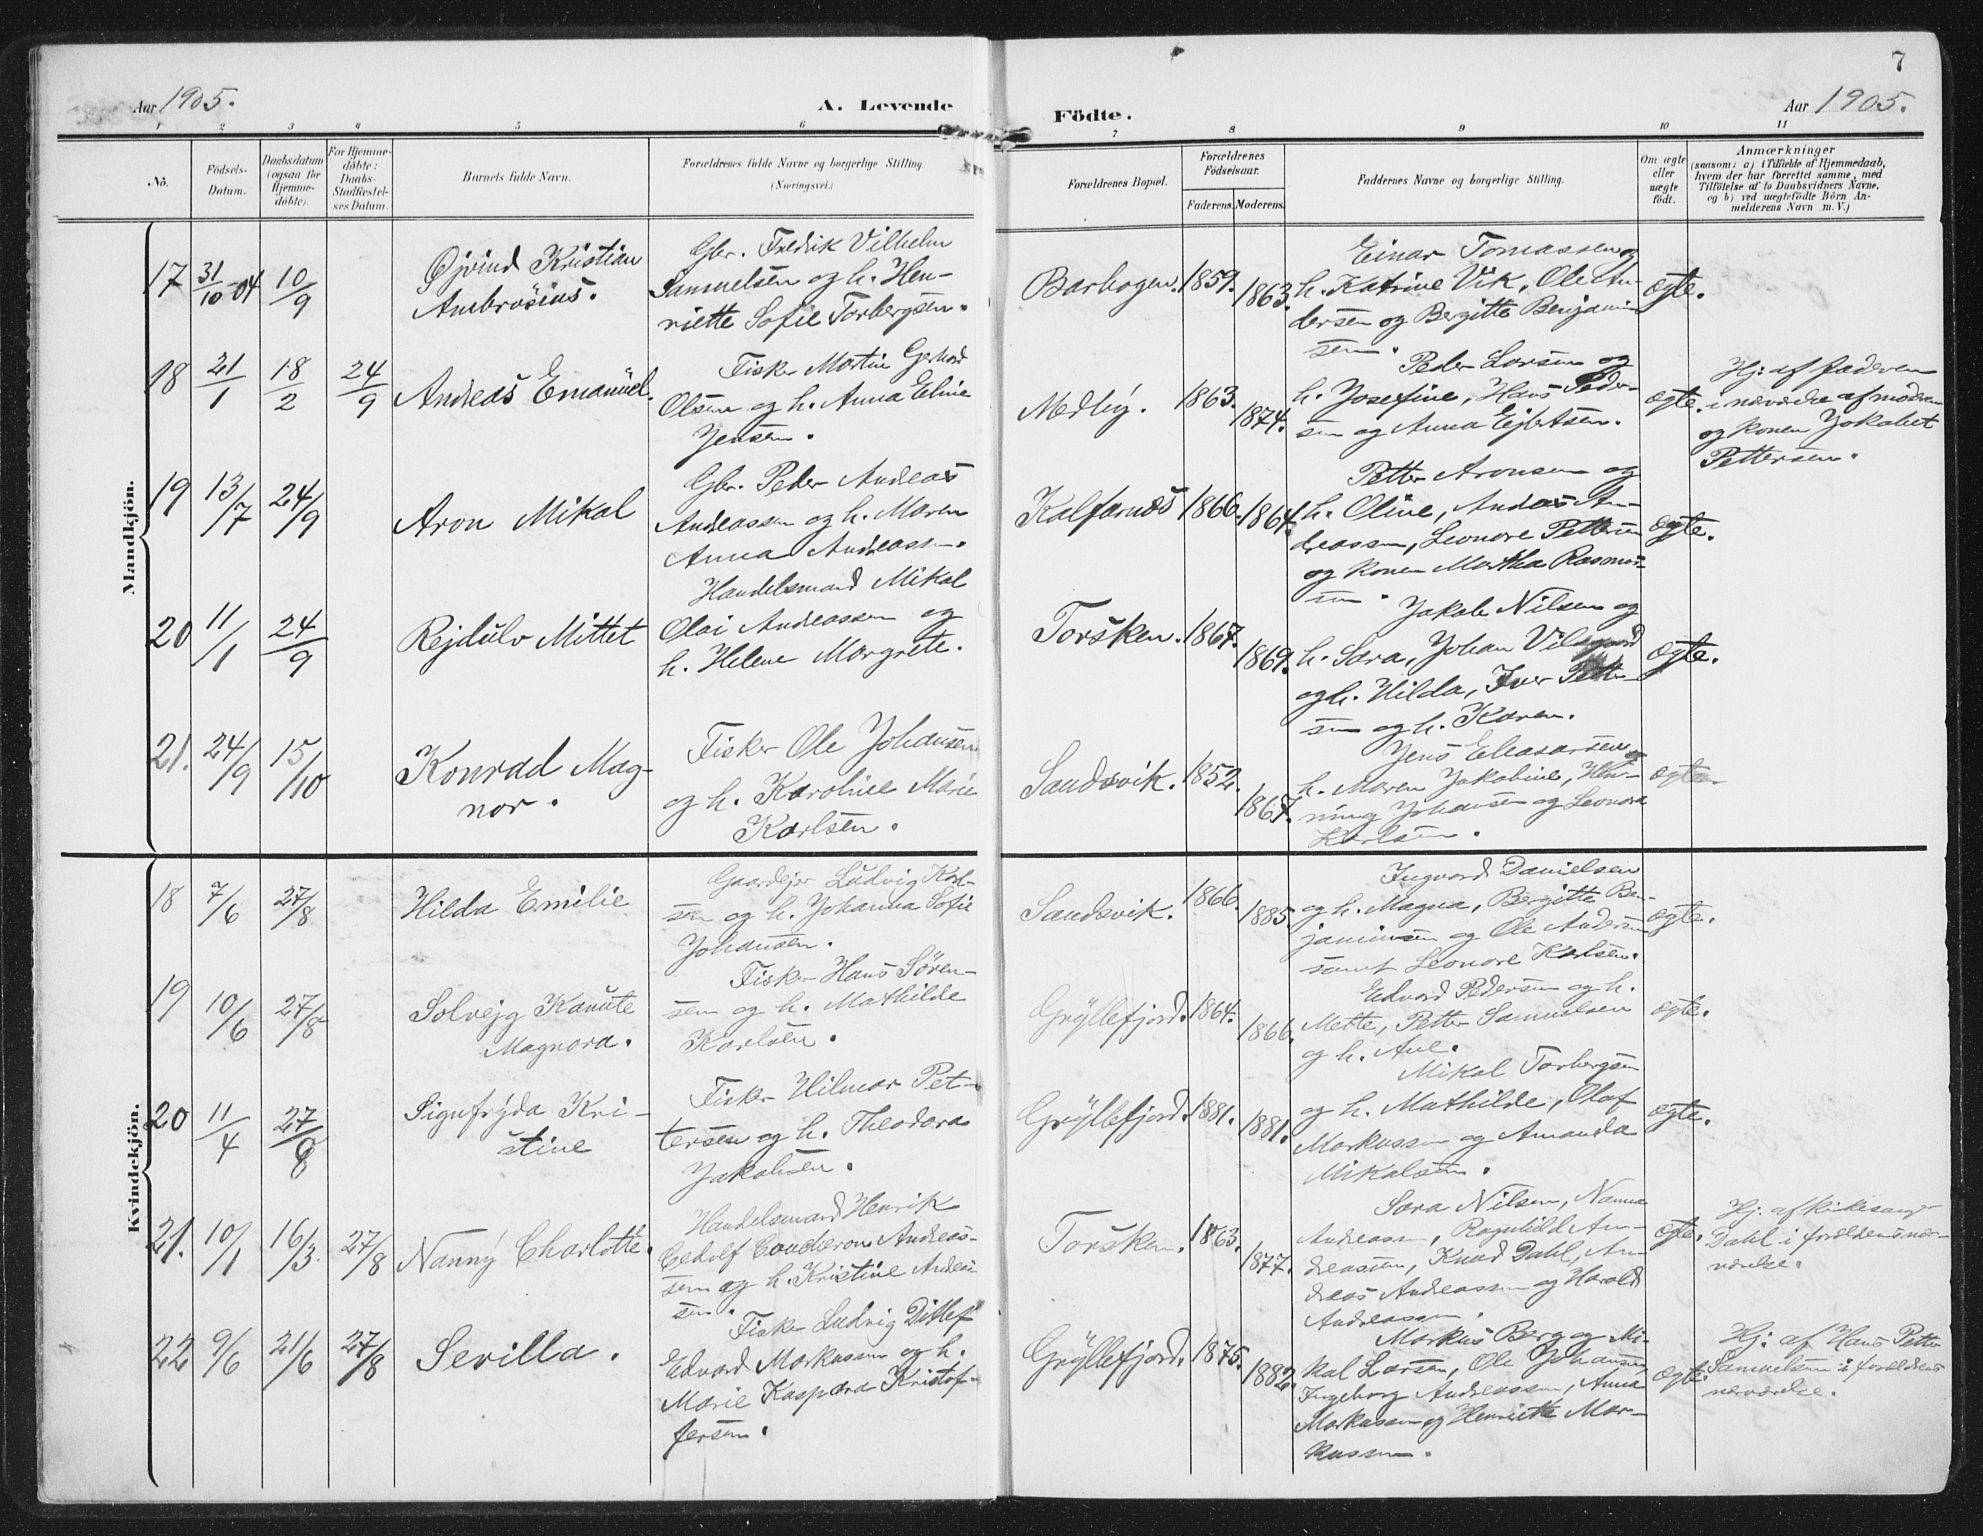 7
Aar 1905.
A. Levende
Födte.
Aar 1905.
1 2 3 4 5 6 7 8 9 10 11
No.
Födsels-
Datum.
Daabsdatum
(ogsaa for
Hjemme-
döbte).
For Hjemme-
döbte:
Daabs-
Stadfæstel-
ses Datum.
Barnets fulde Navn.
Forældrenes fulde Navne og borgerlige Stilling.
(Næringsvei.)
Forældrenes Bopæl.
Forældrenes
Födselsaar.
Faderens. Moderens.
Faddernes Navne og borgerlige Stilling.
Om ægte
eller
uægte
födt.
Anmærkninger
(saasom: a) i Tilfælde af Hjemmedaab,
hvem der har forrettet samme, med
Tilföielse af to Daabsvidners Navne,
og b) ved uægtefödte Börn An-
melderens Navn m. V.)
Mandkjön.
17 31/10-04 10/9
Øjvind Kristian
Ambrosius.
Gbr. Fredrik Vilhelm
Samuelsen og h. Hen-
riette Sofie Torbergsen.
Barbogen. 1859. 1863.
Einar Tomassen og
h. Katrine Vik, Ole An-
dersen og Bergitte Benjamin
sen.
ægte.
18 21/1 18/2 24/9
Andreas Emanuel.
Fisker Martin Gerhard
Olsen og h. Anna Eline
Jensen.
Medby. 1863. 1874.
Peder Larsen og
h. Josefine, Hans Peder-
sen og Anna Ejlertsen.
ægte.
Hj: af faderen
i nærværelse af moderen
og konen Jakobet
Pettersen.
19 13/7 24/9
Aron Mikal
Gbr. Peder Andreas
Andreassen og h. Maren
Anna Andreassen.
Kalfarnes 1866. 1864.
Petter Aronsen og
h. Oline, Andreas An-
dreassen, Leonore Pettersen
og konen Martha Rasmus-
sen.
ægte.
20 11/1 24/9
Rejdulv Mittet
Handelsmand Mikal
Olai Andreassen og
h. Helene Margrete.
Torsken. 1867. 1869.
Jakob Nilsen og
h. Sara, Johan
og h. Hilda, Iver Petter-
sen og h. Karen.
ægte.
21. 24/9 15/10
Konrad Mag-
nor.
Fisker Ole Johansen
og h. Karoline Marie
Karlsen.
Sandsvik. 1852. 1867.
Jens Eleasarsen og
h. Maren Jakobine, Hen-
ning Johansen og Leonora
Karlsen.
ægte
Kvindekjön.
18 7/6 27/8
Hilda Emilie
Gaardejer Ludvig Karl-
sen og h. Johanna Sofie
Johansen.
Sandsvik. 1866. 1885.
Ingvard Danielsen
og h. Magna, Bergitte Ben-
jaminsen og Ole Andersen
samt Leonore Karlsen.
ægte.
19 10/6 27/8
Solvejg Kanute
Magnora.
Fisker Hans Søren-
sen og h. Mathilde
Karlsen.
Gryllefjord. 1864. 1866.
Edvard Pedersen og h.
Mette, Petter Samuelsen
og h. Ane.
ægte.
20 11/4 27/8
Signfryda Kri-
stine
Fisker Hilmar Pet-
tersen og h. Theodora
Jakobsen.
Gryllefjord. 1881. 1881.
Mikal Torbergsen
og h. Mathilde, Olaf
Markussen og Amanda
Mikalsen.
ægte.
21. 10/1 16/3. 27/8
Nanny Charlotte.
Handelsmand Henrik
Andreas-
sen og h. Kristine Andreas
sen.
Torsken. 1863. 1877.
Sara Nilsen, Nanna
Andreassen, Ragnhild An-
dreassen, Knud Dahl, An-
dreas Andreassen og Harald
Andreassen.
ægte.
Hj: af kirkesanger
Dahl i forældrenes nær-
værelse.
22 9/6 21/6 27/8
Sevilla.
Fisker Ludvig Ditlef
Edvard Markussen og h.
Marie Kaspara Kristof-
fersen.
Gryllefjord. 1875. 1882.
Markus Berg og Mi-
kal Larsen, Ole Johansen,
Ingeborg Andreassen, Anna
Markussen og Henriette Mar-
kussen.
ægte.
Hj: af Hans Petter
Samuelsen i forældrenes
nærværelse.